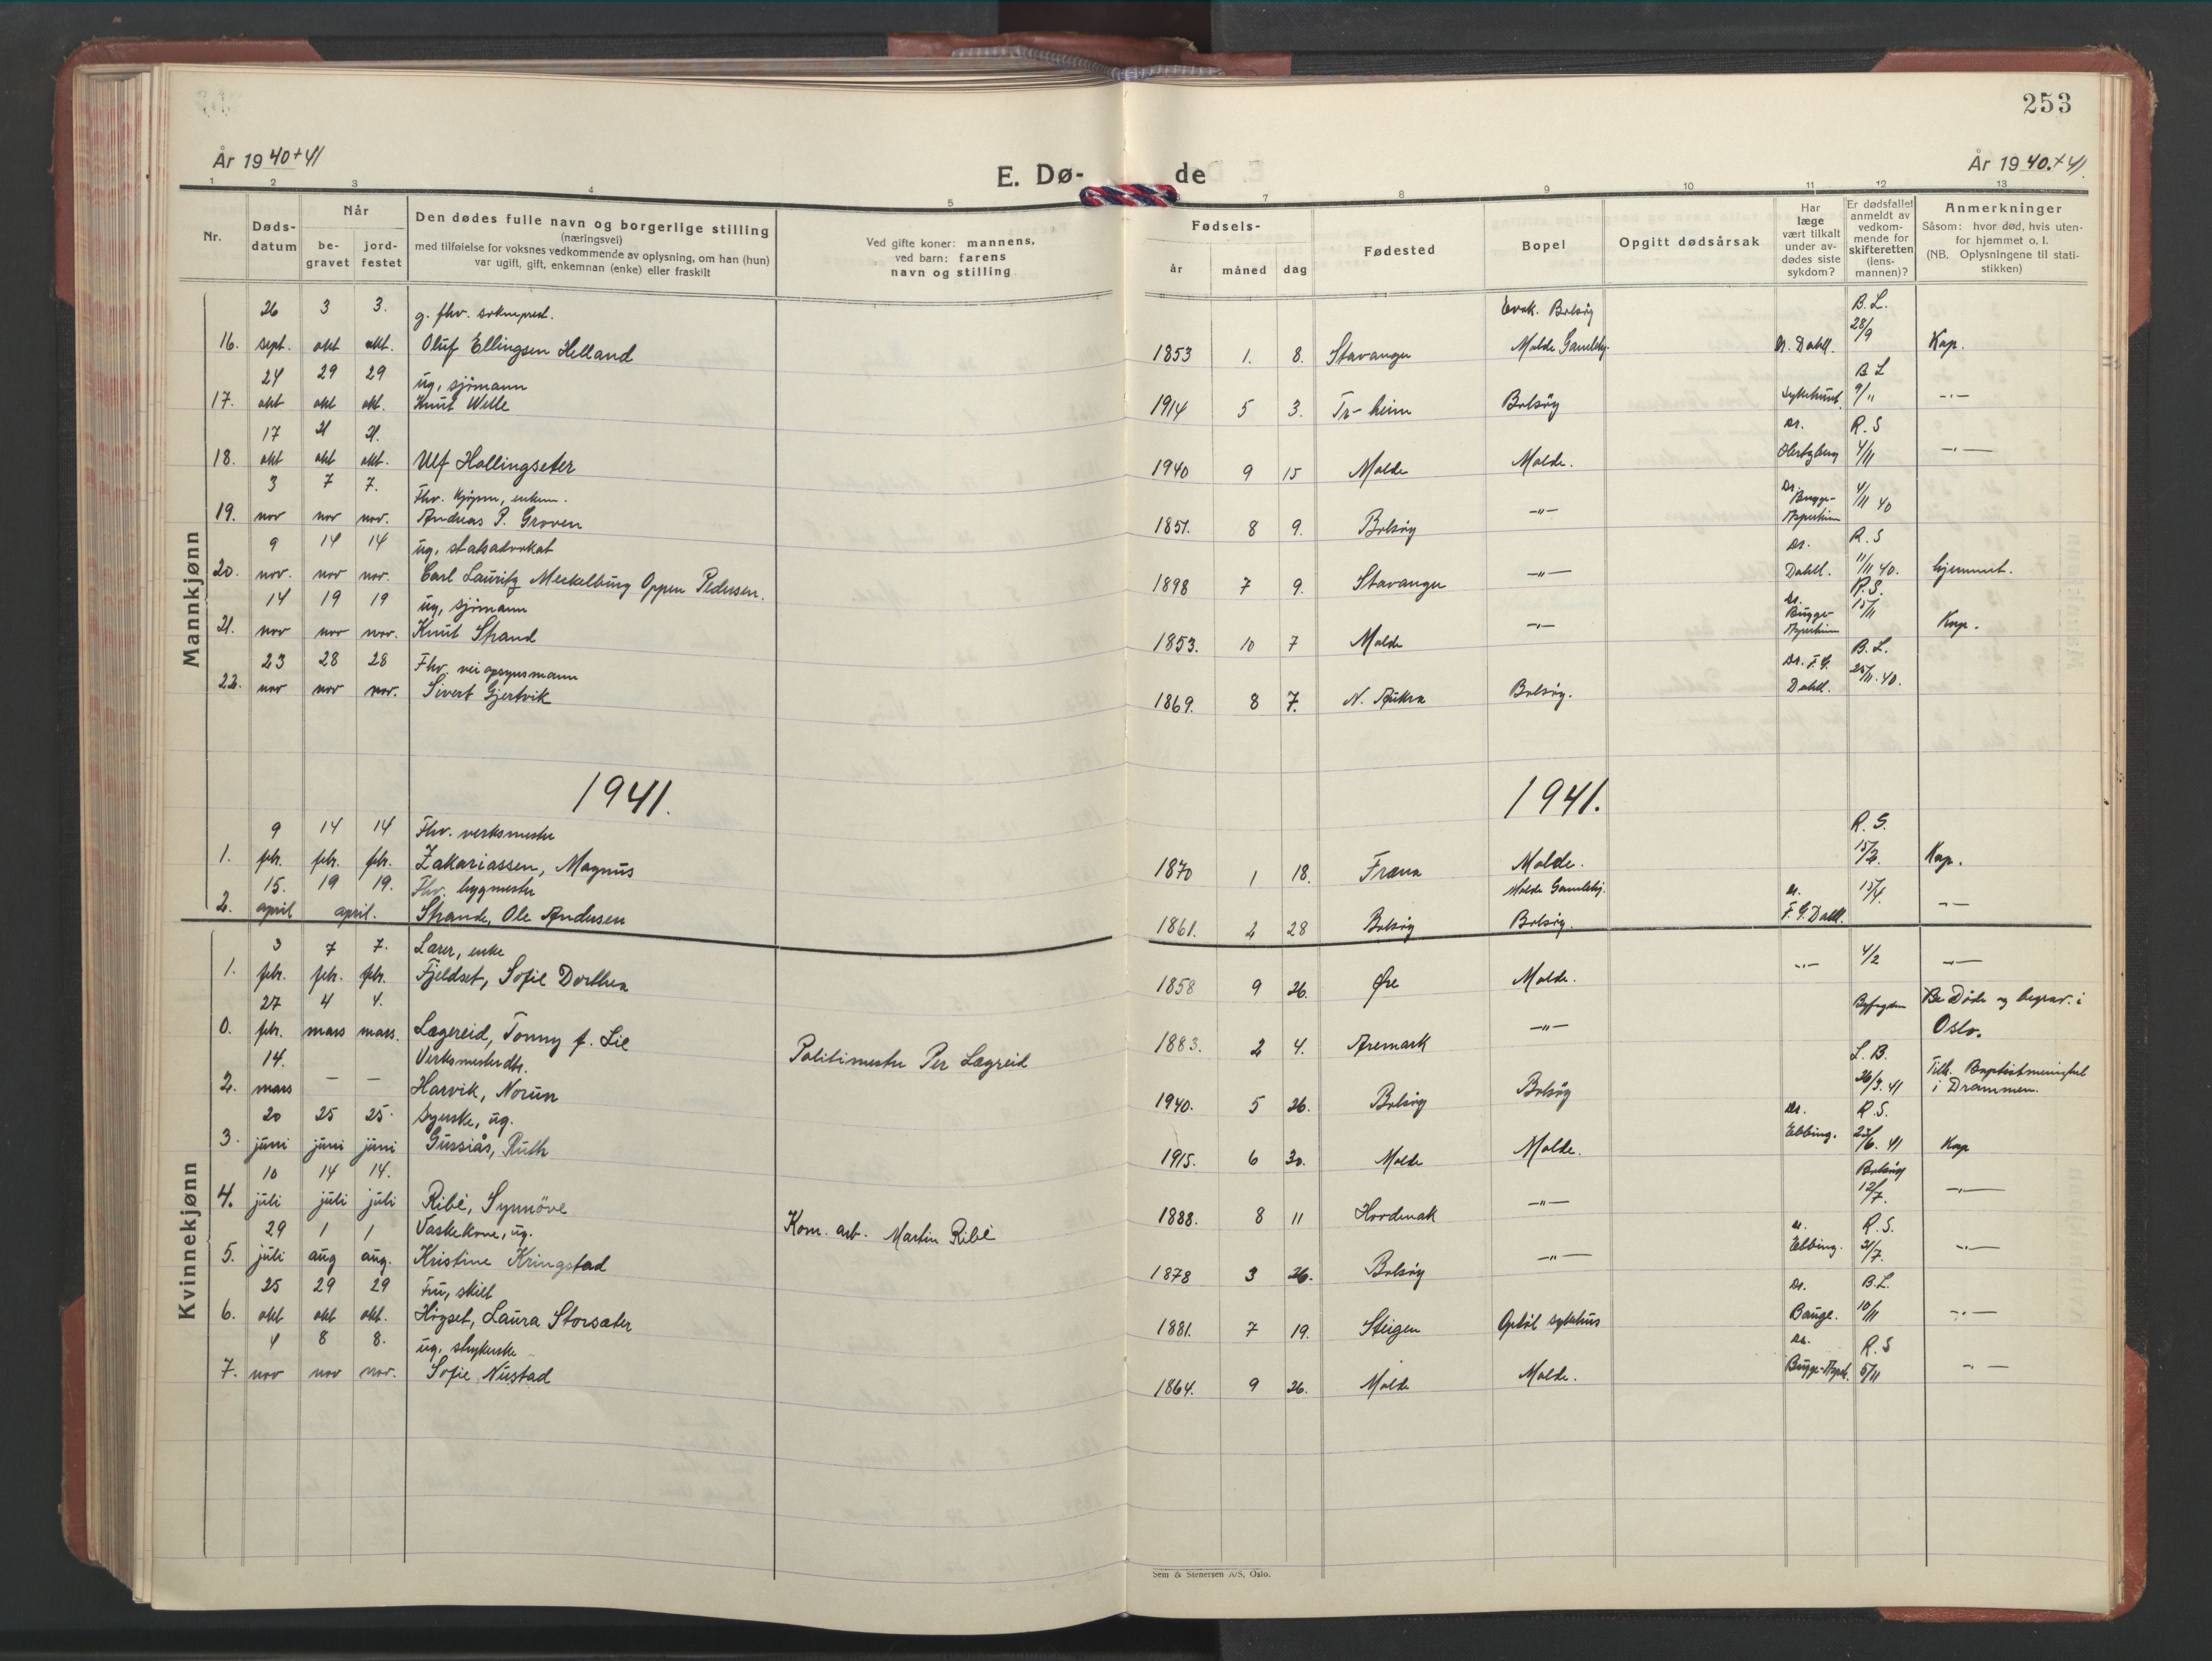 253
År 1940+41
E. Dø-
de
År 1940.+41.
1 2 3 4 5 6 7 8 9 10 11 12 13
Nr.
Døds-
datum
Når
be-
gravet
jord-
festet
Den dødes fulle navn og borgerlige stilling
(næringsvei)
med tilføielse for voksnes vedkommende av oplysning, om han (hun)
var ugift, gift, enkemnan (enke) eller fraskilt
Ved gifte koner: mannens.
ved barn: farens
navn og stilling
Fødsels-
år måned dag
Fødested
Bopel
Opgitt dødsårsak
Har
læge
vært tilkalt
under av-
dødes siste
sykdom?
Er dødsfallet
anmeldt av
vedkom-
mende for
skifteretten
(lens-
mannen)?
Anmerkninger
Såsom: hvor død, hvis uten-
for hjemmet o. l.
(NB. Oplysningene til stati-
stikken)
Mannkjønn
26 3 3. g. fhv. sokneprest. Evak. Bolsøy B. L.
16. sept. okt okt. Oluf Ellingsen Helland 1853 1. 8. Stavanger Molde Gamlehj. Dr. Dahll. 28/9 Kap.
24 29 29 ug, sjømann B L
17. okt okt okt. Knut Welle 1914 5 3. Tr-heim Bolsøy Sykehuset 9/11 -"-
17 21 21. Dr. R. S
18. okt okt okt. Ulf Hallingseter 1940 9 15 Molde Molde. Hertzberg 4/11 -"-
3 7 7. Fhv. kjøpm, enkem. Dr. Bugge-
19. nov nov nov. Andreas P. Groven 1851. 8 9. Bolsøy -"- Asperheim 4/11 40
9 14 14 ug, statsadvokat Dr. R. S
20. nov. nov nov. Carl Lauritz Meckelburg Oppen Pedersen. 1898 7 9. Stavanger -"- Dahll. 11/11 40. hjemmet.
14 19 19 ug, sjømann Dr. Bugge- R. S.
21. nov nov nov. Knut Strand 1853. 10 7 Molde -"- Asperheim 15/11 Kap.
23 28 28 Fhv. veiopsynsmann Dr. F. G. B. L.
22. nov nov nov. Sivert Gjertvik 1869. 8 7. N. Aukra Bolsøy. Dahll. 25/11.40.
1941. 1941.
9 14 14 Fhv. verksmester R. S.
1. febr. febr. febr. Zakariassen, Magnus 1870 1 18. Fræna Molde. 15/2. Kap.
15. 19 19. Fhv. bygmester Molde Gamlehj. Dr. 15/4.
2. april april. Strande, Ole Andersen 1861. 2 28 Bolsøy Bolsøy. F. G. Dahll. -"-
Kvinnekjønn
3 7 7. Lærer, enke
1. febr. febr. febr. Fjeldset, Sofie Dorthea 1858 9 26. Øre Molde. -"- 4/2 -"-
27 4 4. Byfogden Døde og begrav. i
0. febr. mars mars. Lægereid, Tonny f. Lie Politimester Per Lægreid 1883. 2 4. Aremark -"- Oslo.
14. Verksmesterdtr. L. B. Tilh. Baptistmenighet
2. mars — — Harvik, Norun 1940. 5 26. Bolsøy Bolsøy 26/3.41 i Drammen.
20 25 25. Syerske, ug. Dr. R. S.
3. juni juni juni Gussiås, Ruth 1915. 6 30. Molde Molde. Ebbing. 23/6.41 Kap
10 14 14. Bolsøy
4. juli juli juli Ribe, Synnöve Kom. arb. Martin Ribe 1888. 8 11 -"- 12/7. -"-
29 1 1 Vaskekone, ug. Dr. R. S.
5. juli aug aug. Kristine Kringstad 1878 3 26. Bolsøy -"- Ebbing. 31/7. -"-
25 29 29 Fru, skilt Dr. B.L.
6. okt okt okt. Høgset, Laura Storsæter 1881. 7 19. Steigen Opdøl sykehus Bauge. 10/11 -"-
4 8 8. ug, strykerske Dr. R. S
7. nov nov nov. Sofie Nustad 1864. 9 26. Molde Molde. Bugge-Asperh. 5/11 -"-
Sem & Stenersen A/S, Oslo.